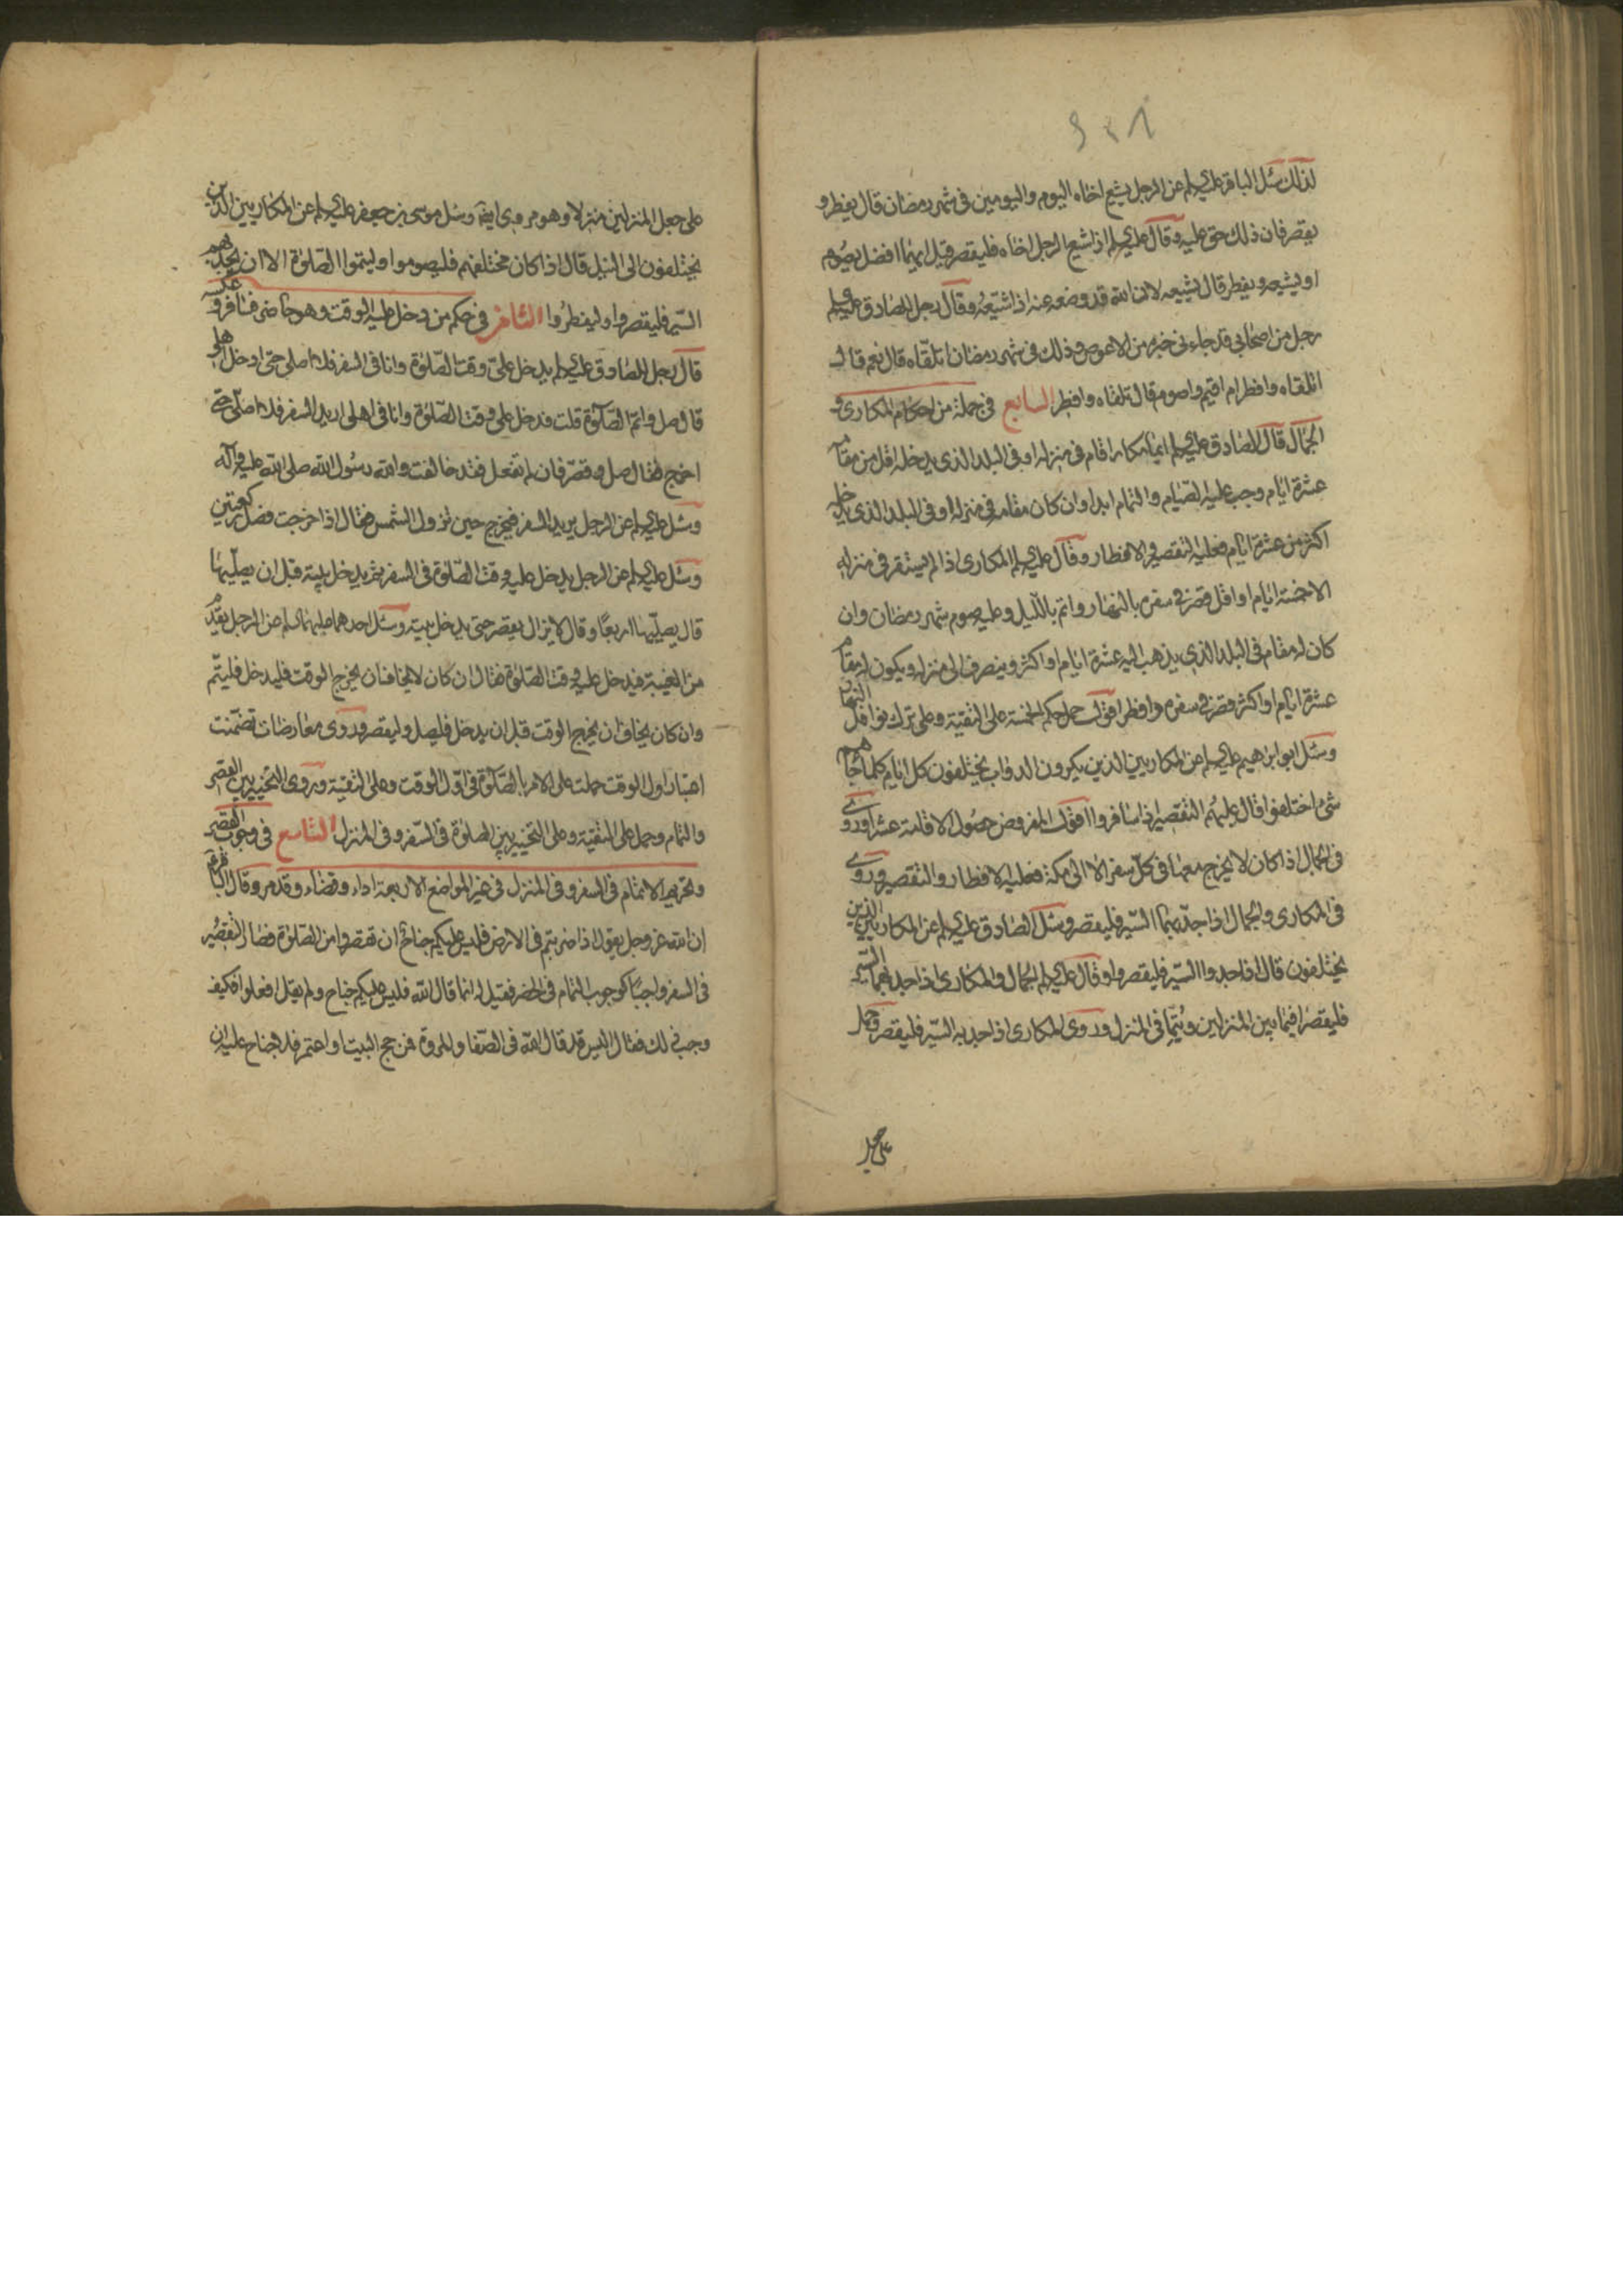 لذلك سئل الباقر عليه السلم عن الرجل يشيع اخاه اليوم واليومين فى شهر رمضان قال يفطر و
يقصر فان ذلك حق عليه وقال عليه السلم اذا شيع الرجل اخاه فليقصر قيل ايهما افضل يصوم
او يشيعه ويفطر قال يشيعه لان الله قد وضعه عنه اذا شيعه وقال رجل للصادق عليه السلم
رجل من اصحابى قد جاءنى خبره من الاعوص وذلك فى شهر رمضان اتلقاه قال نعم قال
اتلقاه وافطر ام اقيم واصوم قال تلقاه وافطر السابع فى جملة من احكام المكارى و
الجمال قال الصادق عليه السلم ايما مكار اقام فى منزله او فى البلد الذى يدخله اقل من مقام
عشرة ايام وجب عليه الصيام والتمام ابدا وان كان مقامه فى منزله او فى البلد الذى يدخله
اكثر من عشرة ايام فعليه التقصير والافطار وقال عليه السلم المكارى اذا لم يستقر فى منزله
الا خمسة ايام او اقل قصر فى سفره بالنهار واتم بالليل وعليه صوم شهر رمضان وان
كان له مقام فى البلد الذى يذهب اليه عشرة ايام او اكثر وينصرف الى منزله ويكون له مقام
عشرة ايام او اكثر قصر فى سفره وافطر اقول حمل حكم الخمسة على التقية وعلى ترك نوافل النهار
وسئل ابو ابرهيم عليه السلم عن المكاريين الذين يكرون الدواب يختلفون كل ايام كلما جاءهم
شئ اختلفوا قال عليهم التقصير اذا سافروا اقول المفروض حصول الاقامة عشرا وروى
فى الجمال اذا كان لا يخرج معها فى كل سفر الا الى مكة فعليه الافطار والتقصير وروى
فى المكارى والجمال اذا جد بهما السير فليقصر وسئل الصادق عليه السلم عن المكاريين الذين
يختلفون قال اذا جدوا السير فليقصروا وقال عليه السلم الجمال والمكارى اذا جد بهما السير
فليقصرا فيما بين المنزلين ويتما فى المنزل وروى المكارى اذا جد به السير فليقصر وحمل
على جعل المنزلين منزلا وهو مروى ايضا وسئل موسى بن جعفر عليه السلم عن المكاريين الذين
يختلفون الى النيل قال اذا كان مختلفهم فليصوموا وليتموا الصلوة الا ان يجد بهم
السير فليقصروا وليفطروا الثامن فى حكم من دخل عليه الوقت وهو حاضر فسافر و عكسه
قال رجل للصادق عليه السلم يدخل على وقت الصلوة وانا فى السفر فلا اصلى حتى ادخل اهلى
قال صل واتم الصلوة قلت فدخل على وقت الصلوة وانا فى اهلى اريد السفر فلا اصلى حتى
اخرج فقال صل وقصر فان لم تفعل فقد خالفت والله رسول الله صلى الله عليه وآله
وسئل عليه السلم عن الرجل يريد السفر فيخرج حين تزول الشمس فقال اذا خرجت فصل ركعتين
وسئل عليه السلم عن الرجل يدخل عليه وقت الصلوة فى السفر ثم يدخل بيته قبل ان يصليها
قال يصليها اربعا وقال لا يزال يقصر حتى يدخل بيته وسئل احدهما عليهما السلم عن الرجل يقدم
من الغيبة فيدخل عليه وقت الصلوة فقال ان كان لا يخاف ان يخرج الوقت فليدخل فليتم
وان كان يخاف ان يخرج الوقت قبل ان يدخل فليصل وليقصر وروى معارضات تضمنت
اعتبار اول الوقت حملت على الامر بالصلوة فى اول الوقت وعلى التقية وروى التخيير بين القصر
والتمام وحمل على التقية وعلى التخيير بين الصلوة فى السفر وفى المنزل التاسع فى وجوب القصر
وتحريم الاتمام فى السفر وفى المنزل فى غير المواضع الاربعة اداء وقضاء وقد مر وقال الباقر
ان الله عز وجل يقول اذا ضربتم فى الارض فليس عليكم جناح ان تقصروا من الصلوة فصار التقصير
فى السفر واجبا كوجوب التمام فى الحضر فقيل له انما قال الله فليس عليكم جناح ولم يقل افعلوا فكيف
وجب ذلك فقال اليس قد قال الله فى الصفا والمروة فمن حج البيت او اعتمر فلا جناح عليه ان